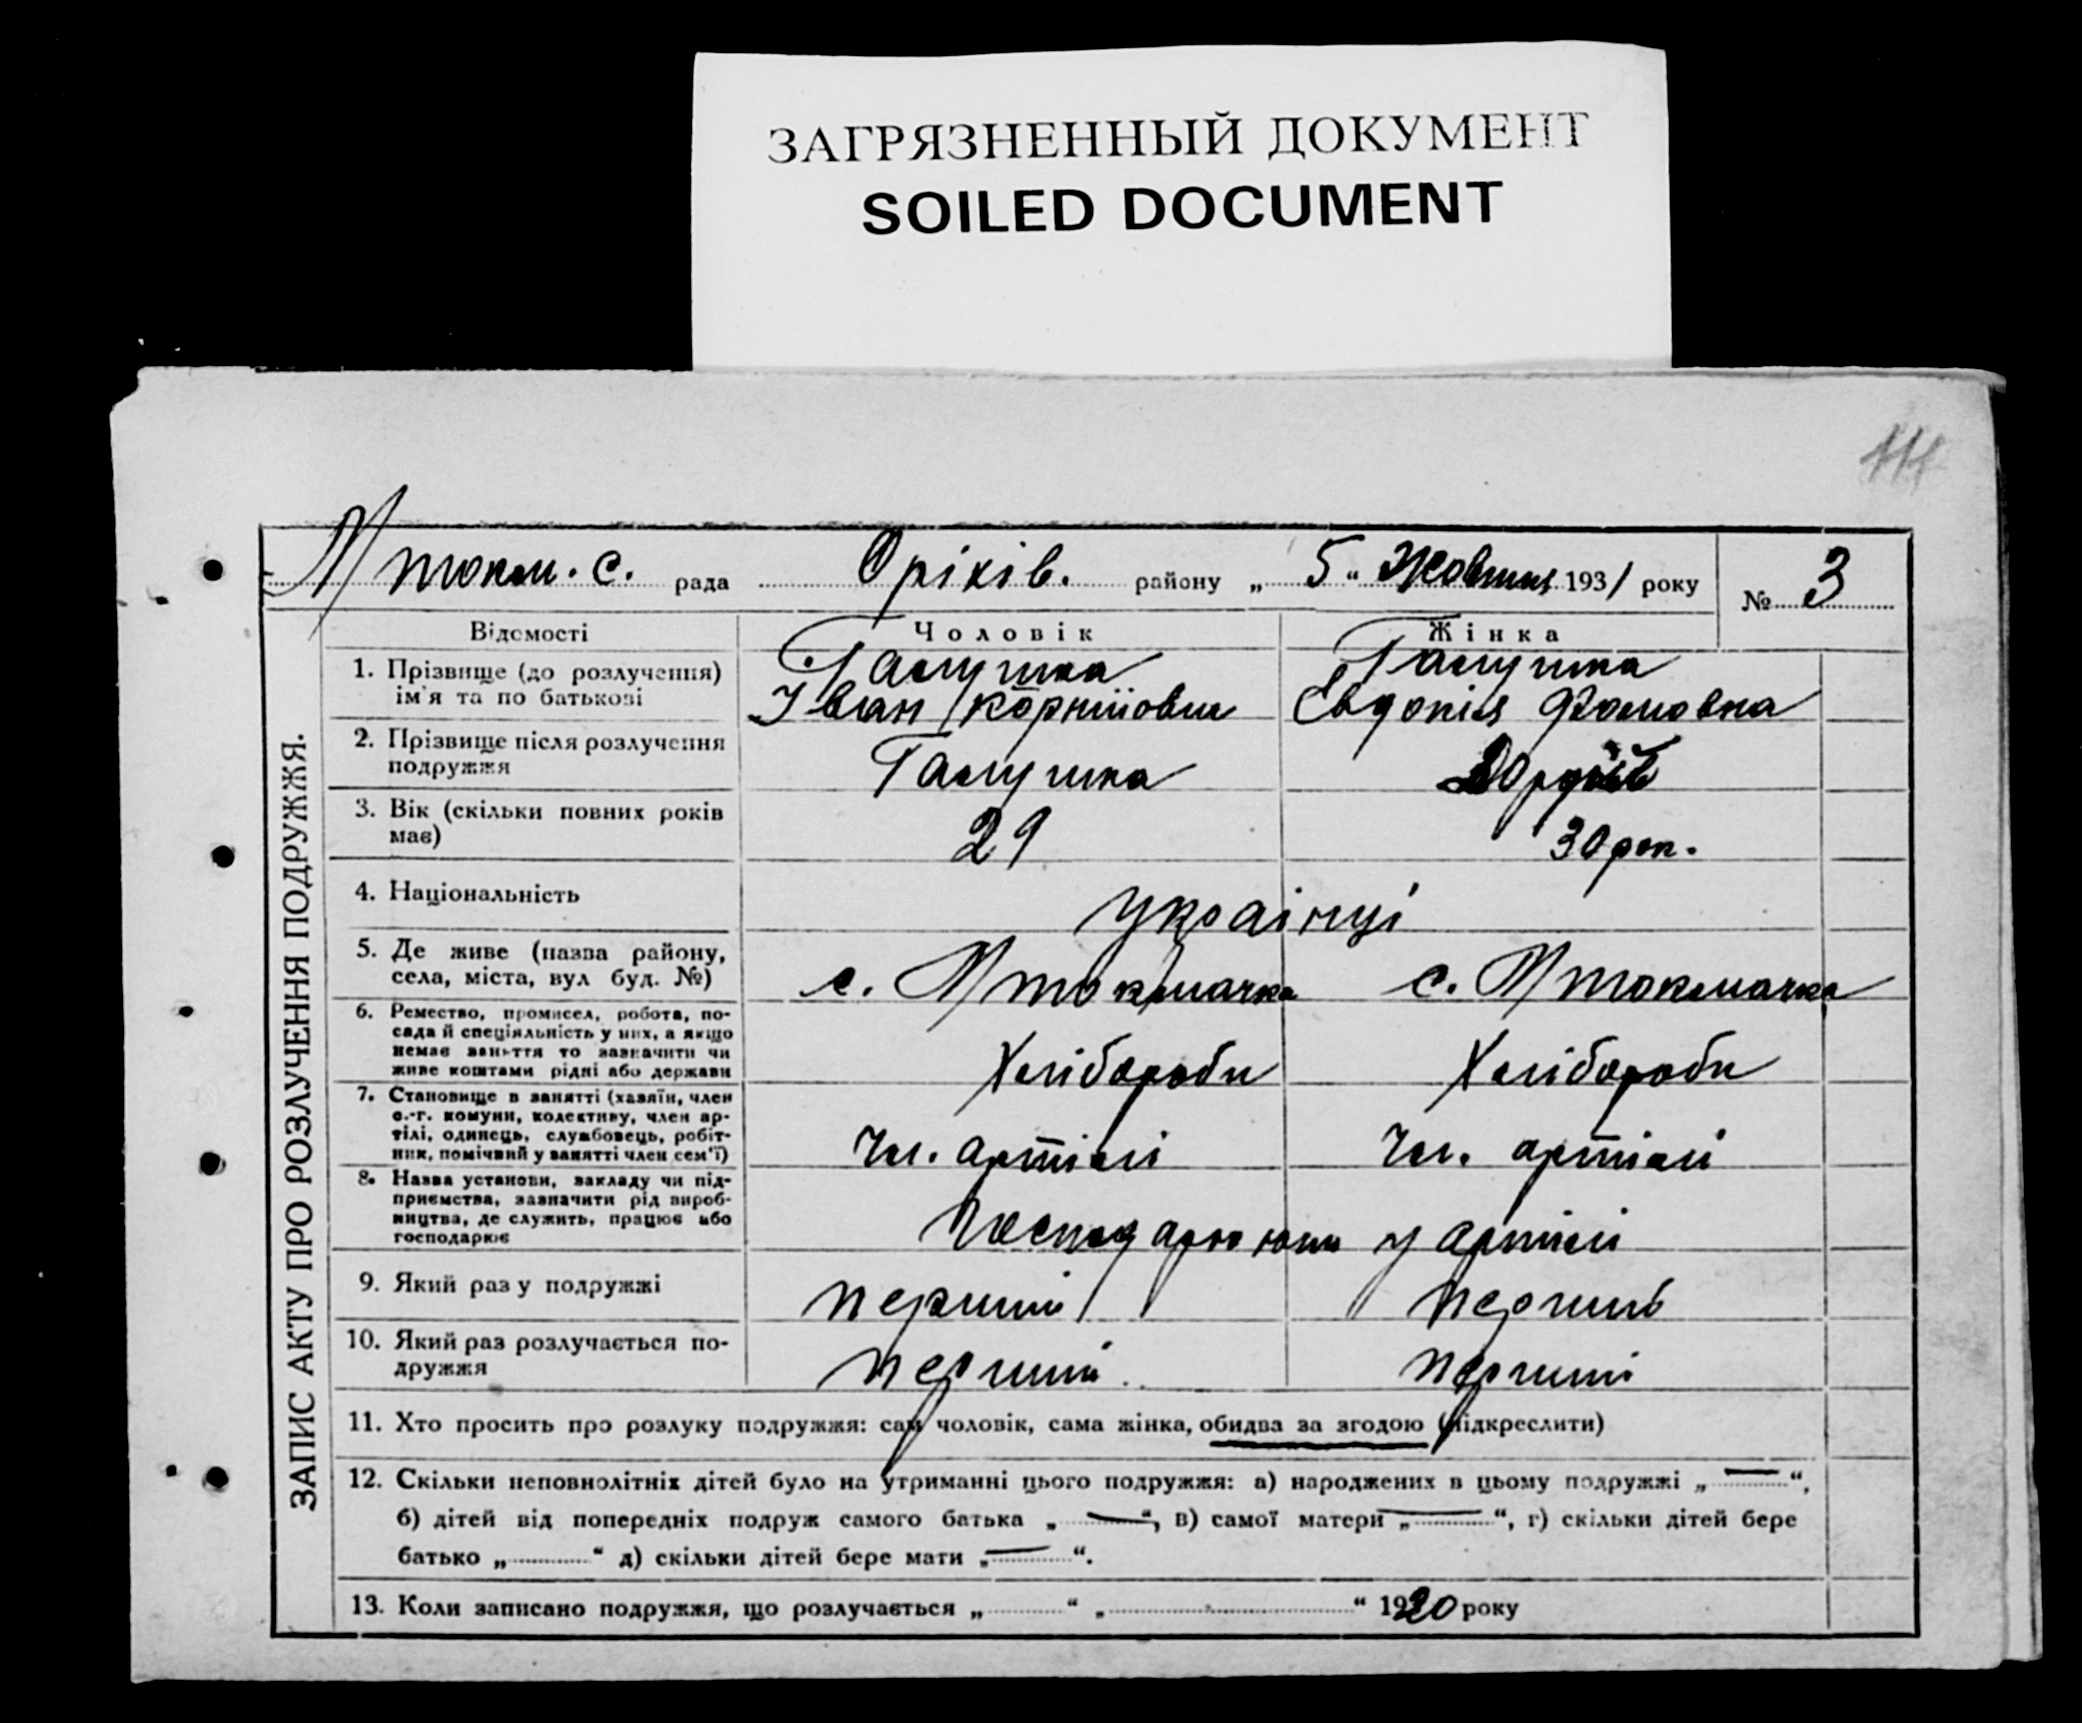 ЗАГРЯЗНЕННЫЙ ДОКУМЕНТ
SOILED DOCUMENT
М/токм. с. рада Оріхів. району „ 5 “ Жовтня 1931 року № 3
ЗАПИС АКТУ ПРО РОЗЛУЧЕННЯ ПОДРУЖЖЯ.
Відомості Чоловік Жінка
1. Прізвище (до розлучення) Галушка Галушка
ім'я та по батькові Іван Корнійович Євдокія Фомовна
2. Прізвище після розлучення
подружжя Галушка
3. Вік (скільки повних років
має) 29 30 рок.
4. Національність українці
5. Де живе (назва району,
села, міста, вул буд. №) с. М/токмачка с. М/токмачка
6. Ремество, промисел, робота, по-
сада й спеціяльність у них, а якщо
немає заняття то зазначити чи
живе коштами рідні або держави Хлібороби Хлібороби
7. Становище в занятті (хазяїн, член
с.-г. комуни, колективу, член ар-
тілі, одинець, службовець, робіт-
ник, помічний у занятті член сем'ї) Чл. артілі Чл. артілі
8. Назва установи, закладу чи під-
приємства, зазначити рід вироб-
ництва, де служить, працює або
господарює Господарюють у артілі
9. Який раз у подружжі перший перший
10. Який раз розлучається по-
дружжя перший перший
11. Хто просить про розлуку подружжя: сам чоловік, сама жінка, обидва за згодою (підкреслити)
12. Скільки неповнолітніх дітей було на утриманні цього подружжя: а) народжених в цьому подружжі „ — “,
б) дітей від попередніх подруж самого батька „ — “, в) самої матери „ — “, г) скільки дітей бере
батько „ “ д) скільки дітей бере мати „ — “.
13. Коли записано подружжя, що розлучається „ “ „ “ 1920 року